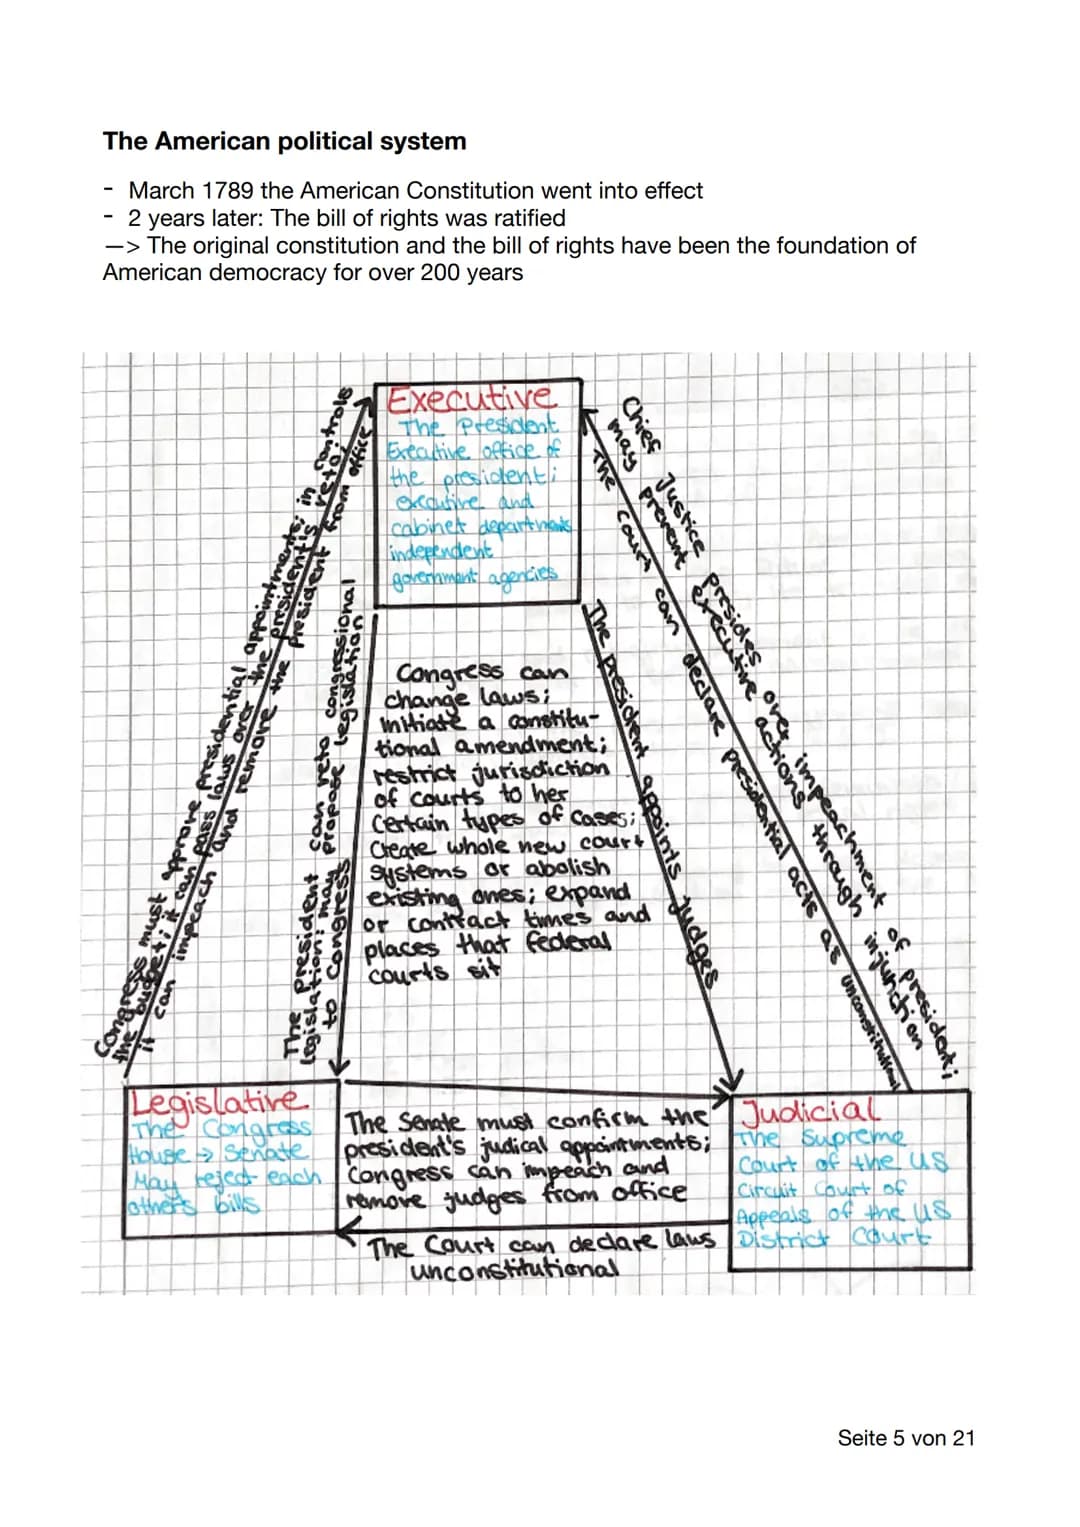 The American political system
- March 1789 the American Constitution went into effect
- 2 years later: The bill of rights was ratified
—> The original constitution and the bill of rights have been the foundation of
American democracy for over 200 years
Executive
The President
Executive office of
the president;
executive and
cabinet departments
independent
government agencies
Congress must approve presidential appointments; in controls
the budget; it can pass laws over the president's veto;
it can impeach and remove the president from office
The President can veto congressional
legislation; may propose legislation
to Congress
Congress can
change laws;
initiate a constitu-
tional amendment;
restrict jurisdiction
of courts to her
Certain types of cases;
Create whole new court
systems or abolish
existing ones; expand
or contract times and
places that federal
courts sit
The president appoints judges
The court can declare presidential acts as unconstitutional
Chief Justice presides over impeachment of president;
may prevent executive actions through injunction
Legislative
The Congress
House → Senate
May reject each
other's bills
The Senate must confirm the
president's judical appointments;
Congress can impeach and
remove judges from office
The Court can declare laws
unconstitutional
Judicial
The Supreme
Court of the US
Circuit Court of
Appeals of the US
District Court
Seite 5 von 21